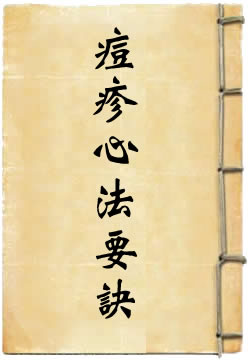 痘疹心法要訣